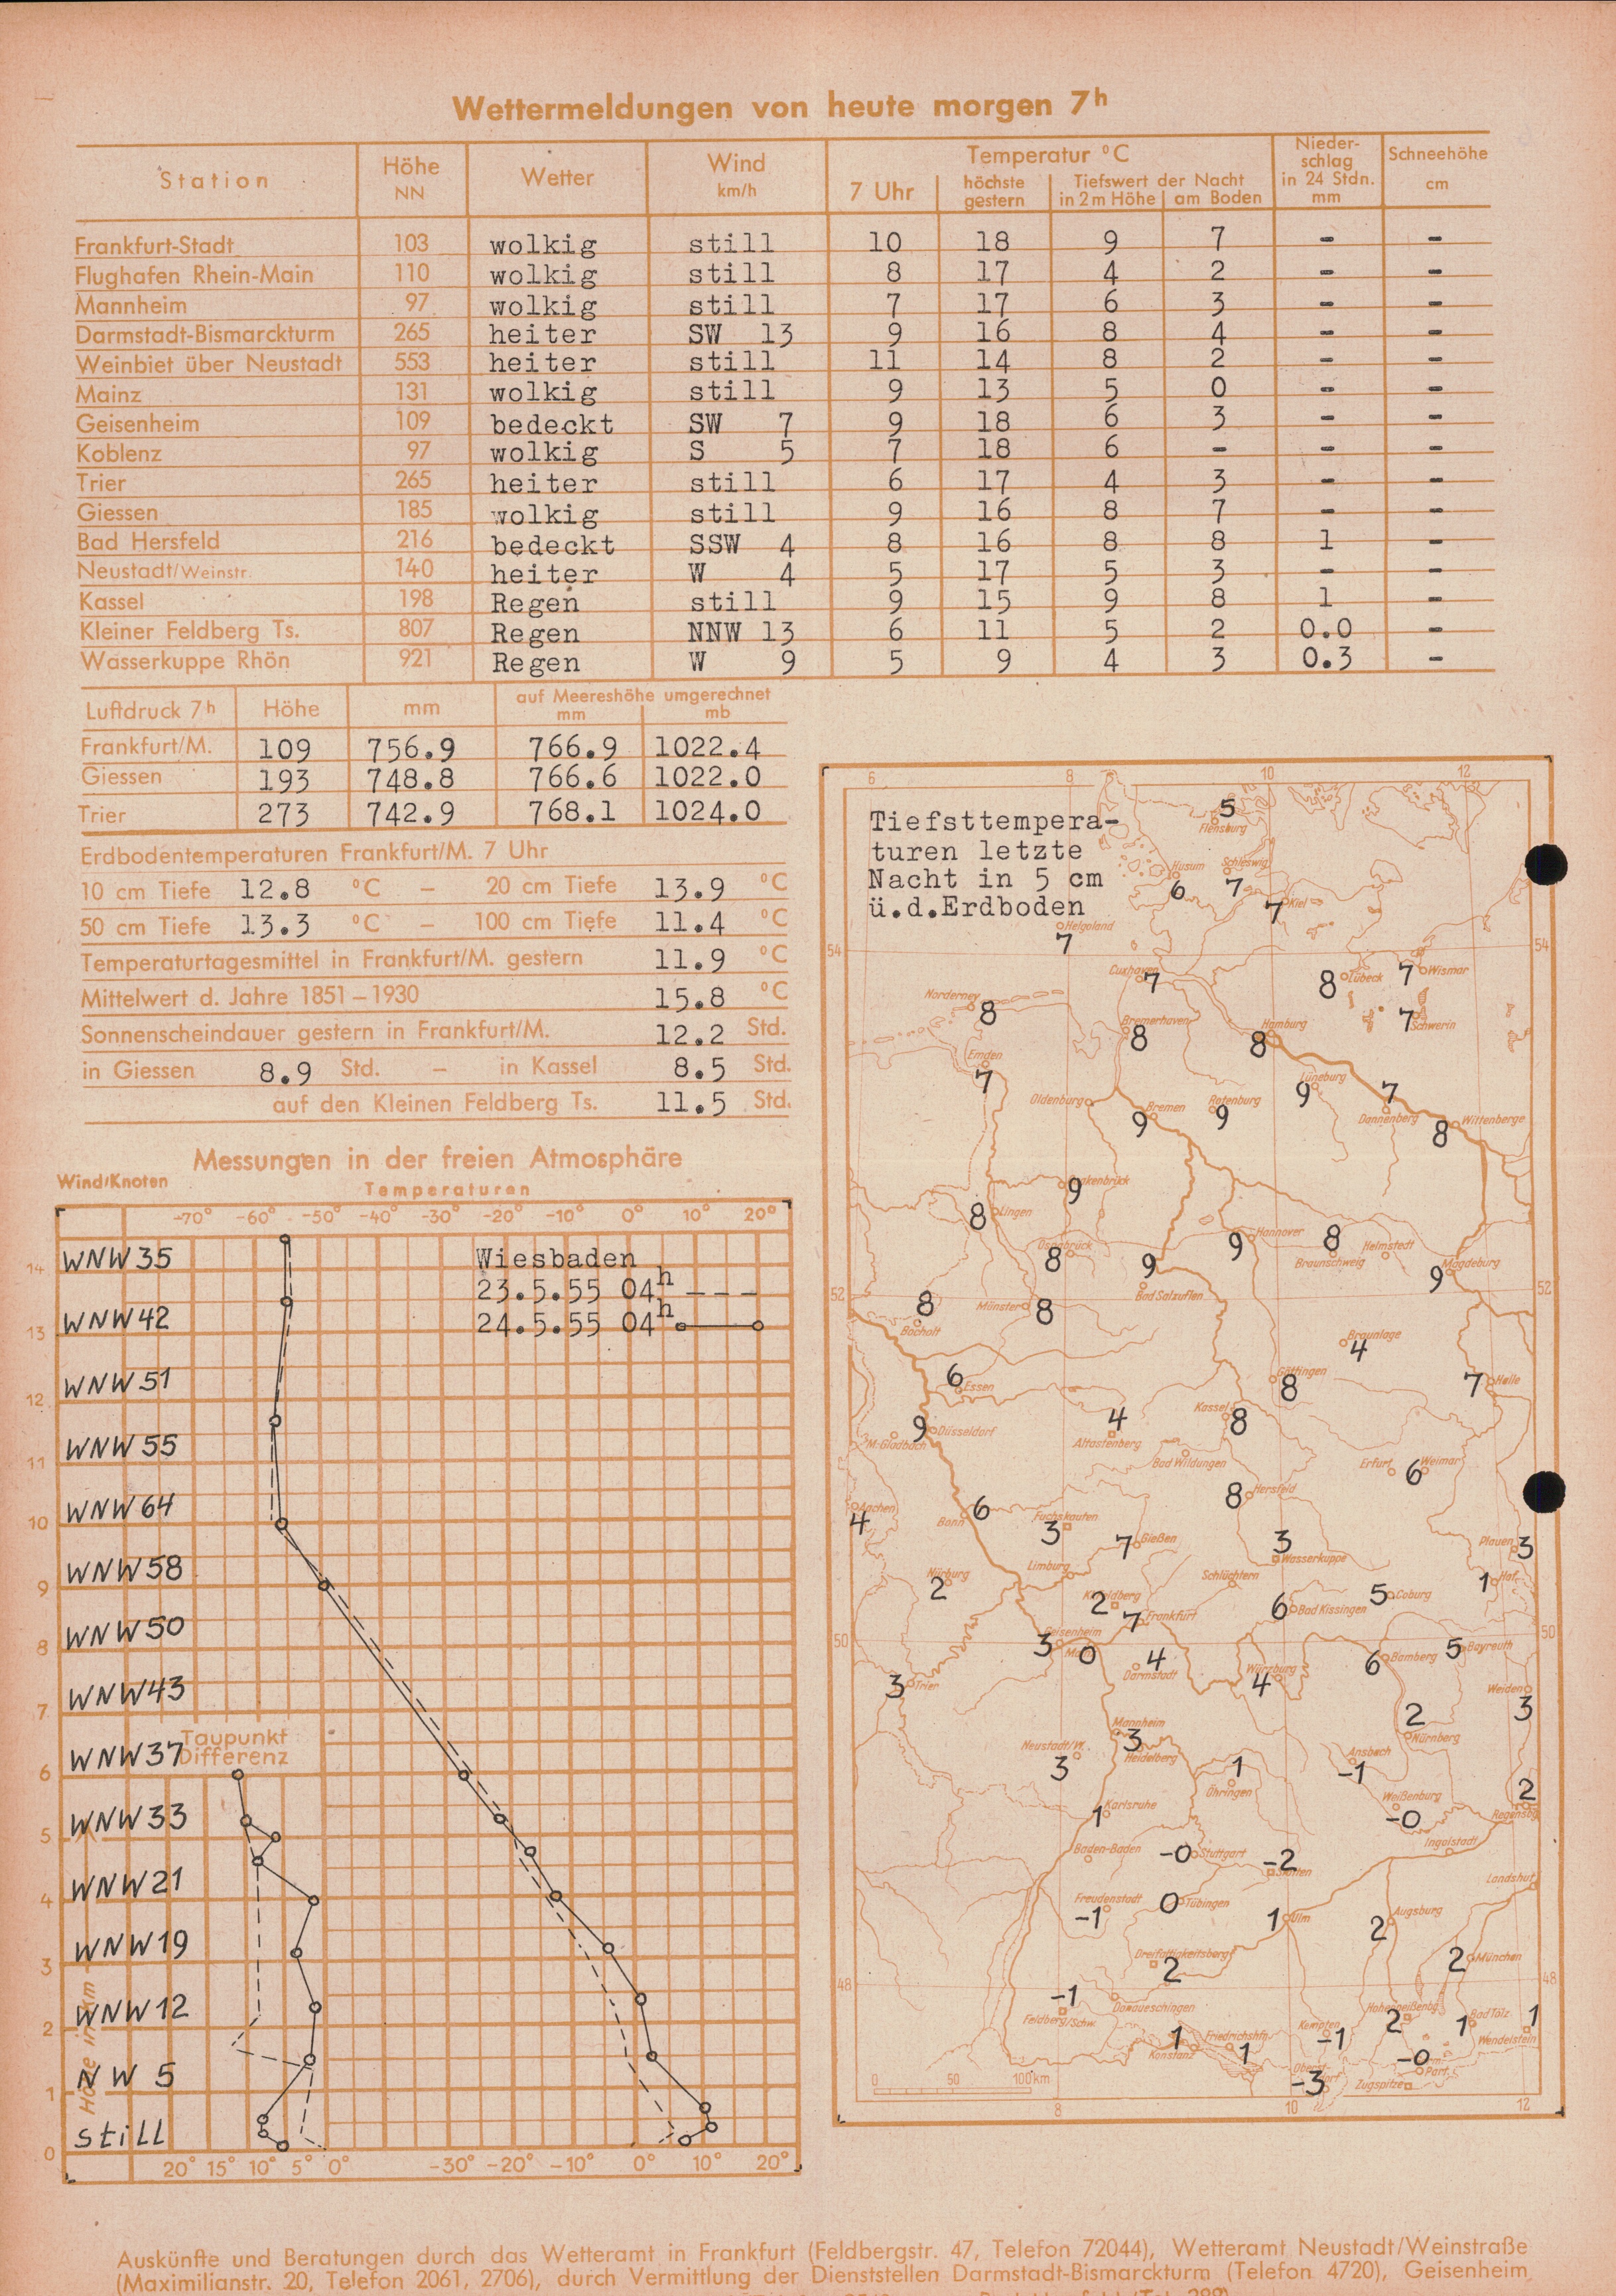 Wettermeldungen von heute morgen 7h
Station Höhe NN Wetter Wind km/h Temperatur °C Nieder-schlag in 24 Stdn. mm Schneehöhe cm
7 Uhr höchste gestern Tiefswert der Nacht in 2 m Höhe am Boden
Frankfurt-Stadt 103 wolkig still 10 18 9 7 - -
Flughafen Rhein-Main 110 wolkig still 8 17 4 2 - -
Mannheim 97 wolkig still 7 17 6 3 - -
Darmstadt-Bismarckturm 265 heiter SW 13 9 16 8 4 - -
Weinbiet über Neustadt 553 heiter still 11 14 8 2 - -
Mainz 131 wolkig still 9 13 5 0 - -
Geisenheim 109 bedeckt SW 7 9 18 6 3 - -
Koblenz 97 wolkig S 5 7 18 6 - - -
Trier 265 heiter still 6 17 4 3 - -
Giessen 185 wolkig still 9 16 8 7 - -
Bad Hersfeld 216 bedeckt SSW 4 8 16 8 8 1 -
Neustadt/Weinstr. 140 heiter W 4 5 17 5 3 - -
Kassel 198 Regen still 9 15 9 8 1 -
Kleiner Feldberg Ts. 807 Regen NNW 13 6 11 5 2 0.0 -
Wasserkuppe Rhön 921 Regen W 9 5 9 4 3 0.3 -
Luftdruck 7h Höhe mm auf Meereshöhe umgerechnet
mm mb
Frankfurt/M. 109 756.9 766.9 1022.4
Giessen 193 748.8 766.6 1022.0
Trier 273 742.9 768.1 1024.0
Erdbodentemperaturen Frankfurt/M. 7 Uhr
10 cm Tiefe 12.8 °C – 20 cm Tiefe 13.9 °C
50 cm Tiefe 13.3 °C – 100 cm Tiefe 11.4 °C
Temperaturtagesmittel in Frankfurt/M. gestern 11.9 °C
Mittelwert d. Jahre 1851–1930 15.8 °C
Sonnenscheindauer gestern in Frankfurt/M. 12.2 Std.
in Giessen 8.9 Std. – in Kassel 8.5 Std.
auf den Kleinen Feldberg Ts. 11.5 Std.
Messungen in der freien Atmosphäre
Wind/Knoten Temperaturen
-70° -60° -50° -40° -30° -20° -10° 0° 10° 20°
Wiesbaden
23.5.55 04h
24.5.55 04h
14 WNW 35
13 WNW 42
12 WNW 51
11 WNW 55
10 WNW 64
9 WNW 58
8 WNW 50
7 WNW 43
Taupunkt
Differenz
6 WNW 37
5 WNW 33
4 WNW 21
3 WNW 19
2 WNW 12
1 NW 5
0 still
Höhe in km
20° 15° 10° 5° 0° -30° -20° -10° 0° 10° 20°
6 8 10 12
Tiefsttempera-
turen letzte
Nacht in 5 cm
ü.d.Erdboden
5 Flensburg
Husum 6
Schleswig 7
7 Kiel
Helgoland 7
54 54
Cuxhaven 7
8 Lübeck
7 Wismar
Norderney 8
Bremerhaven 8
Hamburg 8
7 Schwerin
Emden 7
Oldenburg
Bremen 9
Rotenburg 9
Lüneburg 9
7 Dannenberg
Wittenberge 8
9
8 Lingen
Osnabrück 8
9 Hannover
8 Braunschweig
Helmstedt
Magdeburg 9
9 Bad Salzuflen
52 52
8 Bocholt
Münster 8
Braunlage 4
6 Essen
Göttingen 8
7 Halle
9 Düsseldorf
M.-Gladbach
4 Altastenberg
Kassel 8
Bad Wildungen
Erfurt 6 Weimar
Aachen 4
Bonn 6
Fuchskauten 3
7 Gießen
8 Hersfeld
3 Wasserkuppe
Plauen 3
1 Hof
Nürburg 2
Limburg
Schlüchtern
2
7 Frankfurt
6 Bad Kissingen
5 Coburg
50 50
3 Geisenheim
0
4 Darmstadt
Würzburg 4
6 Bamberg
5 Bayreuth
3 Trier
Weiden 3
Mannheim 3
Neustadt/W. 3
Heidelberg
2 Nürnberg
Ansbach -1
1 Öhringen
Weißenburg -0
2 Regensbg.
1 Karlsruhe
Baden-Baden
-0 Stuttgart
-2
Ingolstadt
Landshut
Freudenstadt -1
0 Tübingen
1 Ulm
Augsburg 2
Dreifaltigkeitsberg 2
2 München
48 48
-1 Feldberg/Schw.
Donaueschingen
1 Konstanz
Friedrichshfn. 1
Kempten -1
Hohenpeißenbg. 2
1 Bad Tölz
1 Wendelstein
-3
-0
Zugspitze
0 50 100 km
8 10 12
Auskünfte und Beratungen durch das Wetteramt in Frankfurt (Feldbergstr. 47, Telefon 72044), Wetteramt Neustadt/Weinstraße
(Maximilianstr. 20, Telefon 2061, 2706), durch Vermittlung der Dienststellen Darmstadt-Bismarckturm (Telefon 4720), Geisenheim